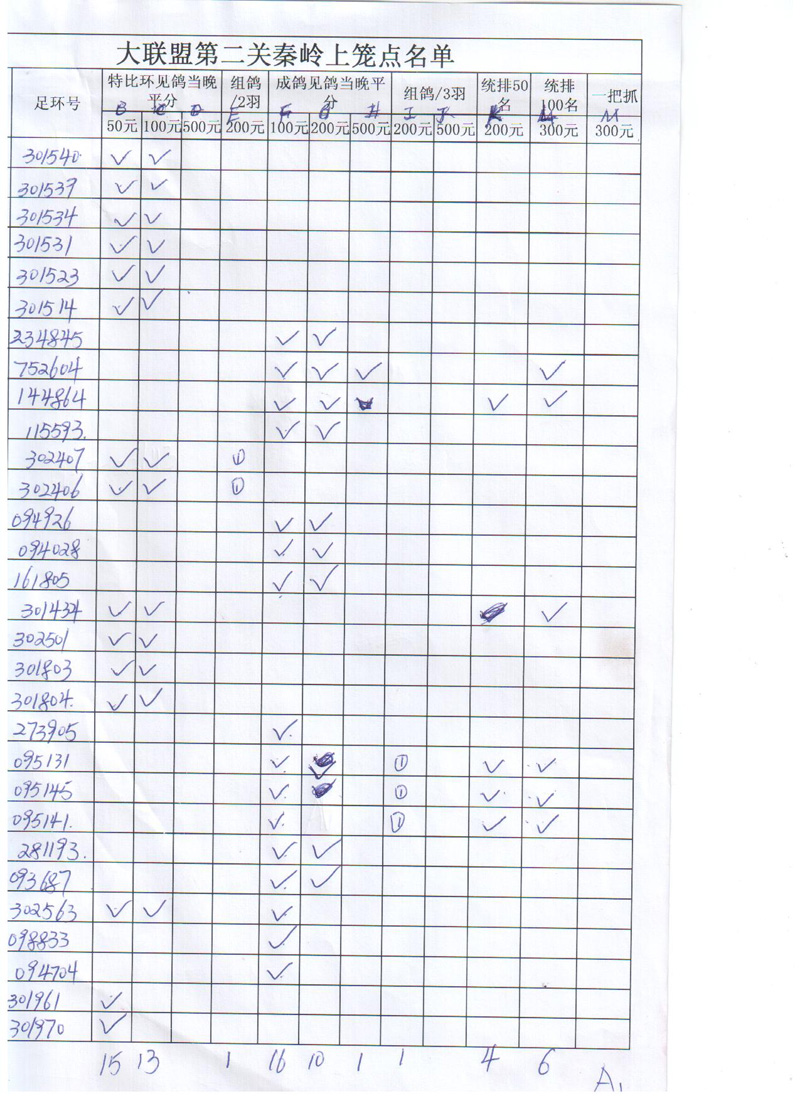 大联盟第二关秦岭上笼点名单
足环号 特比环见鸽当晚平分 组鸽/2羽 成鸽见鸽当晚平分 组鸽/3羽 统排50名 统排100名 一把抓
B D F G H I J K M
50元 100元 500元 200元 100元 200元 500元 200元 500元 200元 300元 300元
301540 ✓ ✓
301539 ✓ ✓
301534 ✓ ✓
301531 ✓ ✓
301523 ✓ ✓
301514 ✓ ✓
234845 ✓ ✓
752604 ✓ ✓ ✓ ✓
144864 ✓ ✓ ✓ ✓
115593. ✓ ✓
302407 ✓ ✓ ①
302406 ✓ ✓ ①
094926 ✓ ✓
094028 ✓ ✓
161805 ✓ ✓
301434 ✓ ✓ ✓
302501 ✓ ✓
301803 ✓ ✓
301804. ✓ ✓
273905 ✓
095131 ✓ ✓ ① ✓ ✓
095145 ✓ ① ✓ ✓
095141. ✓ ① ✓ ✓
281193. ✓ ✓
093687 ✓ ✓
302563 ✓ ✓ ✓
098833 ✓
094704 ✓
301961 ✓
301970 ✓
15 13 1 16 10 1 1 4 6 A1